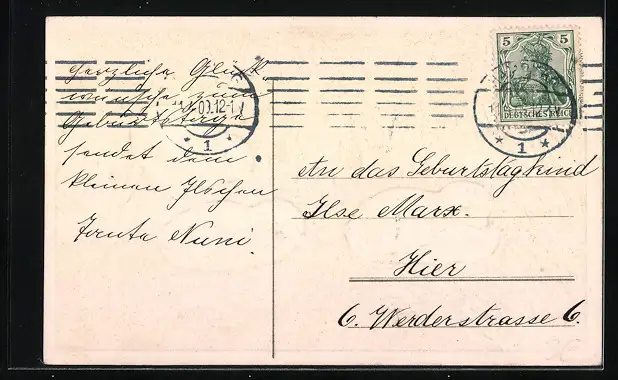 Herzliche Glück
wünsche zum
Geburtstage
sendet dem
kleinen Ilschen
Tante Nuni.
09.12-1 V
* 1 *
5 5
DEUTSCHES REICH
* 1 *
An das Geburtstagkind
Ilse Marx.
Hier
6. Werderstrasse 6.